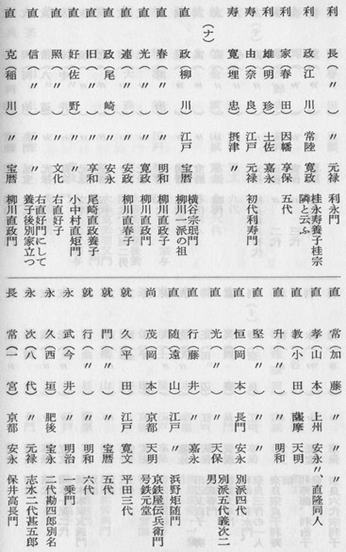 利長（〃）〃 元禄 利永門
利政（江川）常陸 寛政 桂永寿養子桂宗隣と云ふ
利家（春田）因幡 享保 五代
利雄（明珍）土佐 嘉永
寿由（奈良）江戸 元禄 初代利寿門
寿寛（埋忠）摂津 〃
（ナ）
直政（柳川）江戸 宝暦 横谷宗珉門 柳川一派の祖
直春（〃）〃 明和 柳川直政子
直光（〃）〃 寛政 柳川直政門
直連（〃）〃 安政 柳川直春子
直政（尾崎）〃 安永
直旧（〃）〃 享和 尾崎直政養子
直好（佐野）〃 〃 小中村直矩門
直照（〃）〃 文化 右直好子
直信（〃）〃 〃 右直好門にして養子後別家立つ
直克（稲川）〃 宝暦 柳川直政門
直常（加藤）〃 〃
直孝（山本）上州 安永 〃、直隆同人
直教（小田）薩摩 天明
直升（〃）〃 明和
直堅（〃）〃 〃
直恒（岡本）長門 安永 別派四代
直光（〃）〃 天保 別派五代義次二男
直行（藤井）〃 嘉永
直随（遠山）江戸 〃 浜野矩随門
尚茂（岡本）京都 天明 京鉄屋伝兵衛門号鉄元堂
就久（平田）江戸 寛文 平田三代
就門（〃）〃 宝暦 五代
就行（〃）〃 明和 六代
永武（今井）〃 明治 一乗門
永久（西垣）肥後 宝永 二代勘四郎別名
永次（八代）〃 元禄 志水二代甚五郎
長常（一宮）京都 安永 保井高長門